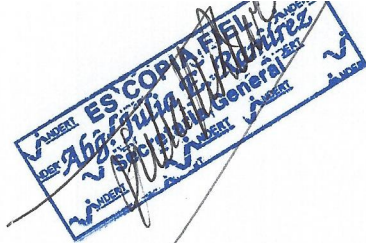 ES COPIA FIEL
Abg. Julia E. Ramírez
Secretaria General
ANDERT
ANDERT
ANDERT
ANDERT
ANDERT